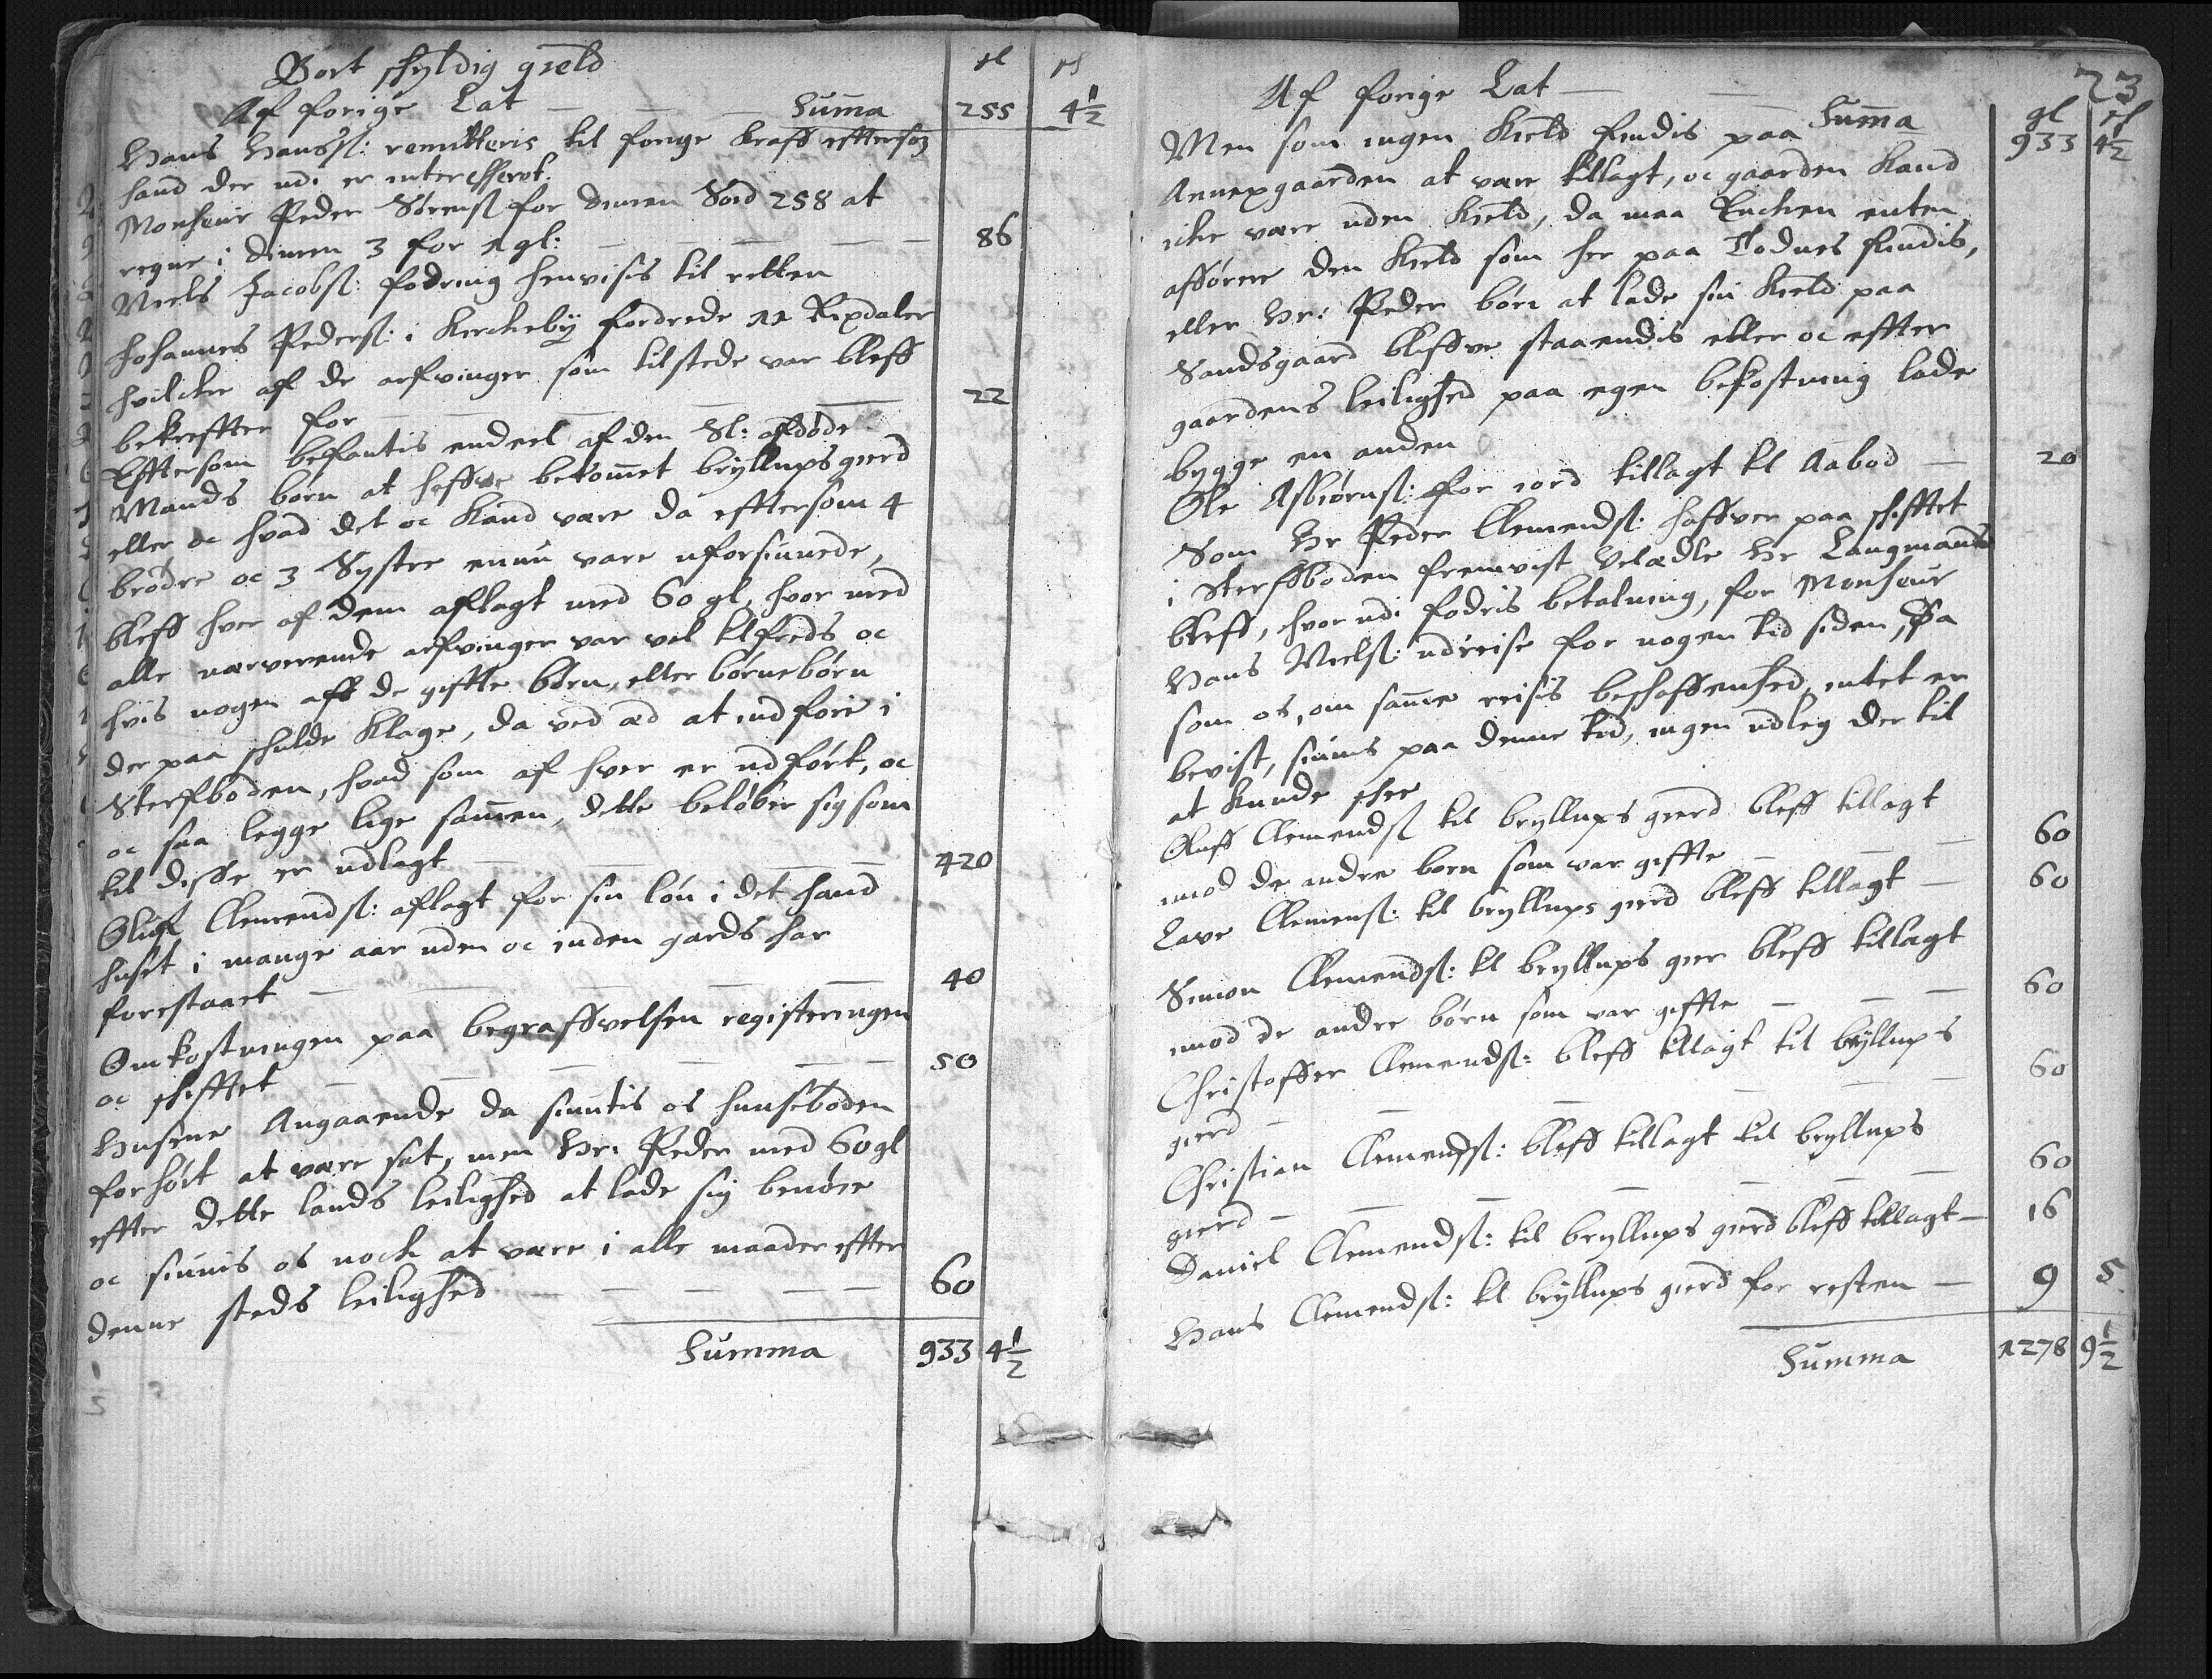 Bort skyldig gield gl sk
Af forige Lat — — Summa 255 4 1/2
Hans Hanss: remitteris til forige Kraff efftersom
hand der udi er interesserot.
Monseur Peder Sørenss for dimen Sod 258 at
regne i dimen 3 for 1 gl: — — — — 86
Niels Jacobs: fodring henvisis til retten
Johannes Peders: i Kirckebÿ fordrede 11 Rixdaler
hvilcke af de arfvinger som tilstede var bleff
bekrefftet for — — — — 22
Efftersom befantis endeel af den Sl: afdøde
Mands børn at haffve bekommet bryllups gierd
eller oc hvad det oc Kand vare da efftersom 4
brødre oc 3 Systre ennu vare uforsiunede,
bleff hver af dem aflagt med 60 gl, hvor med
alle nærverende arfvinger var vel tilfreds oc
hvis nogen aff de giffte børn, eller børnebørn
der paa skulde Klage, da ved æd at indføre i
Sterfboden, hvad som af hver er udført, oc
oc saa legge lige sammen, dette beløber sig som
til disse er udlagt — — — — 420
Oluf Clemends: aflagt for sin løn i det hand
huset i mange aar uden oc inden gards har
forestaaet — — — — — 40
Omkostningen paa begraffvelsen registeringen
oc skifftet — — — — — 50
Husene Angaaende da siuntis os huusboden
forhøit at være sat, men Hr: Peder med 60 gl
effter dette lands leilighed at lade sig benøie
oc siunis os nock at være i alle maader effter
denne steds leilighed — — — — 60
Summa 933 4 1/2
73
Af forige Lat — — Summa gl sk
Men som ingen Kield findis paa 933 4 1/2
Annexgaarden at være tillagt, oc gaarden Kand
icke være uden Kield, da maa Encken enten
afføre den Kield som her paa Todnes findis,
eller Hr: Peder børn at lade sin Kield paa
Sandsgaard bliffve staaendis eller oc effter
gaardens leilighed paa egen bekostning lade
bygge en anden
Ole Asbiørns: for iord tillagt til Aabod — 20
Som Hr Peder Clemends: haffver paa skifftet
i Sterffboden fremvist Velædle Hr Laugmands
bleff, hvor udi fodris betalning, for Monseur
Hans Niels: udreise for nogen tid siden, Da
som os, om samme reisis beskaffenhed intet er
bevist, siunis paa denne tid, ingen udleg der til
at kunde skee
Oluff Clemends til bryllups gierd bleff tillagt
imod de andre børn som var giffte — — — 60
Lave Clemens: til bryllups gierd bleff tillagt — 60
Simon Clemends: til bryllups gier bleff tillagt
imod de andre børn som var giffte — — — 60
Christoffer Clemends: bleff tillagt til bryllups
gierd — — — — — — 60
Christian Clemends: bleff tillagt til bryllups
gierd — — — — — — 60
Daniel Clemends: til bryllups gierd bleff tillagt — 16
Hans Clemends: til bryllups gierd for resten — 9 5
Summa 1278 9 1/2